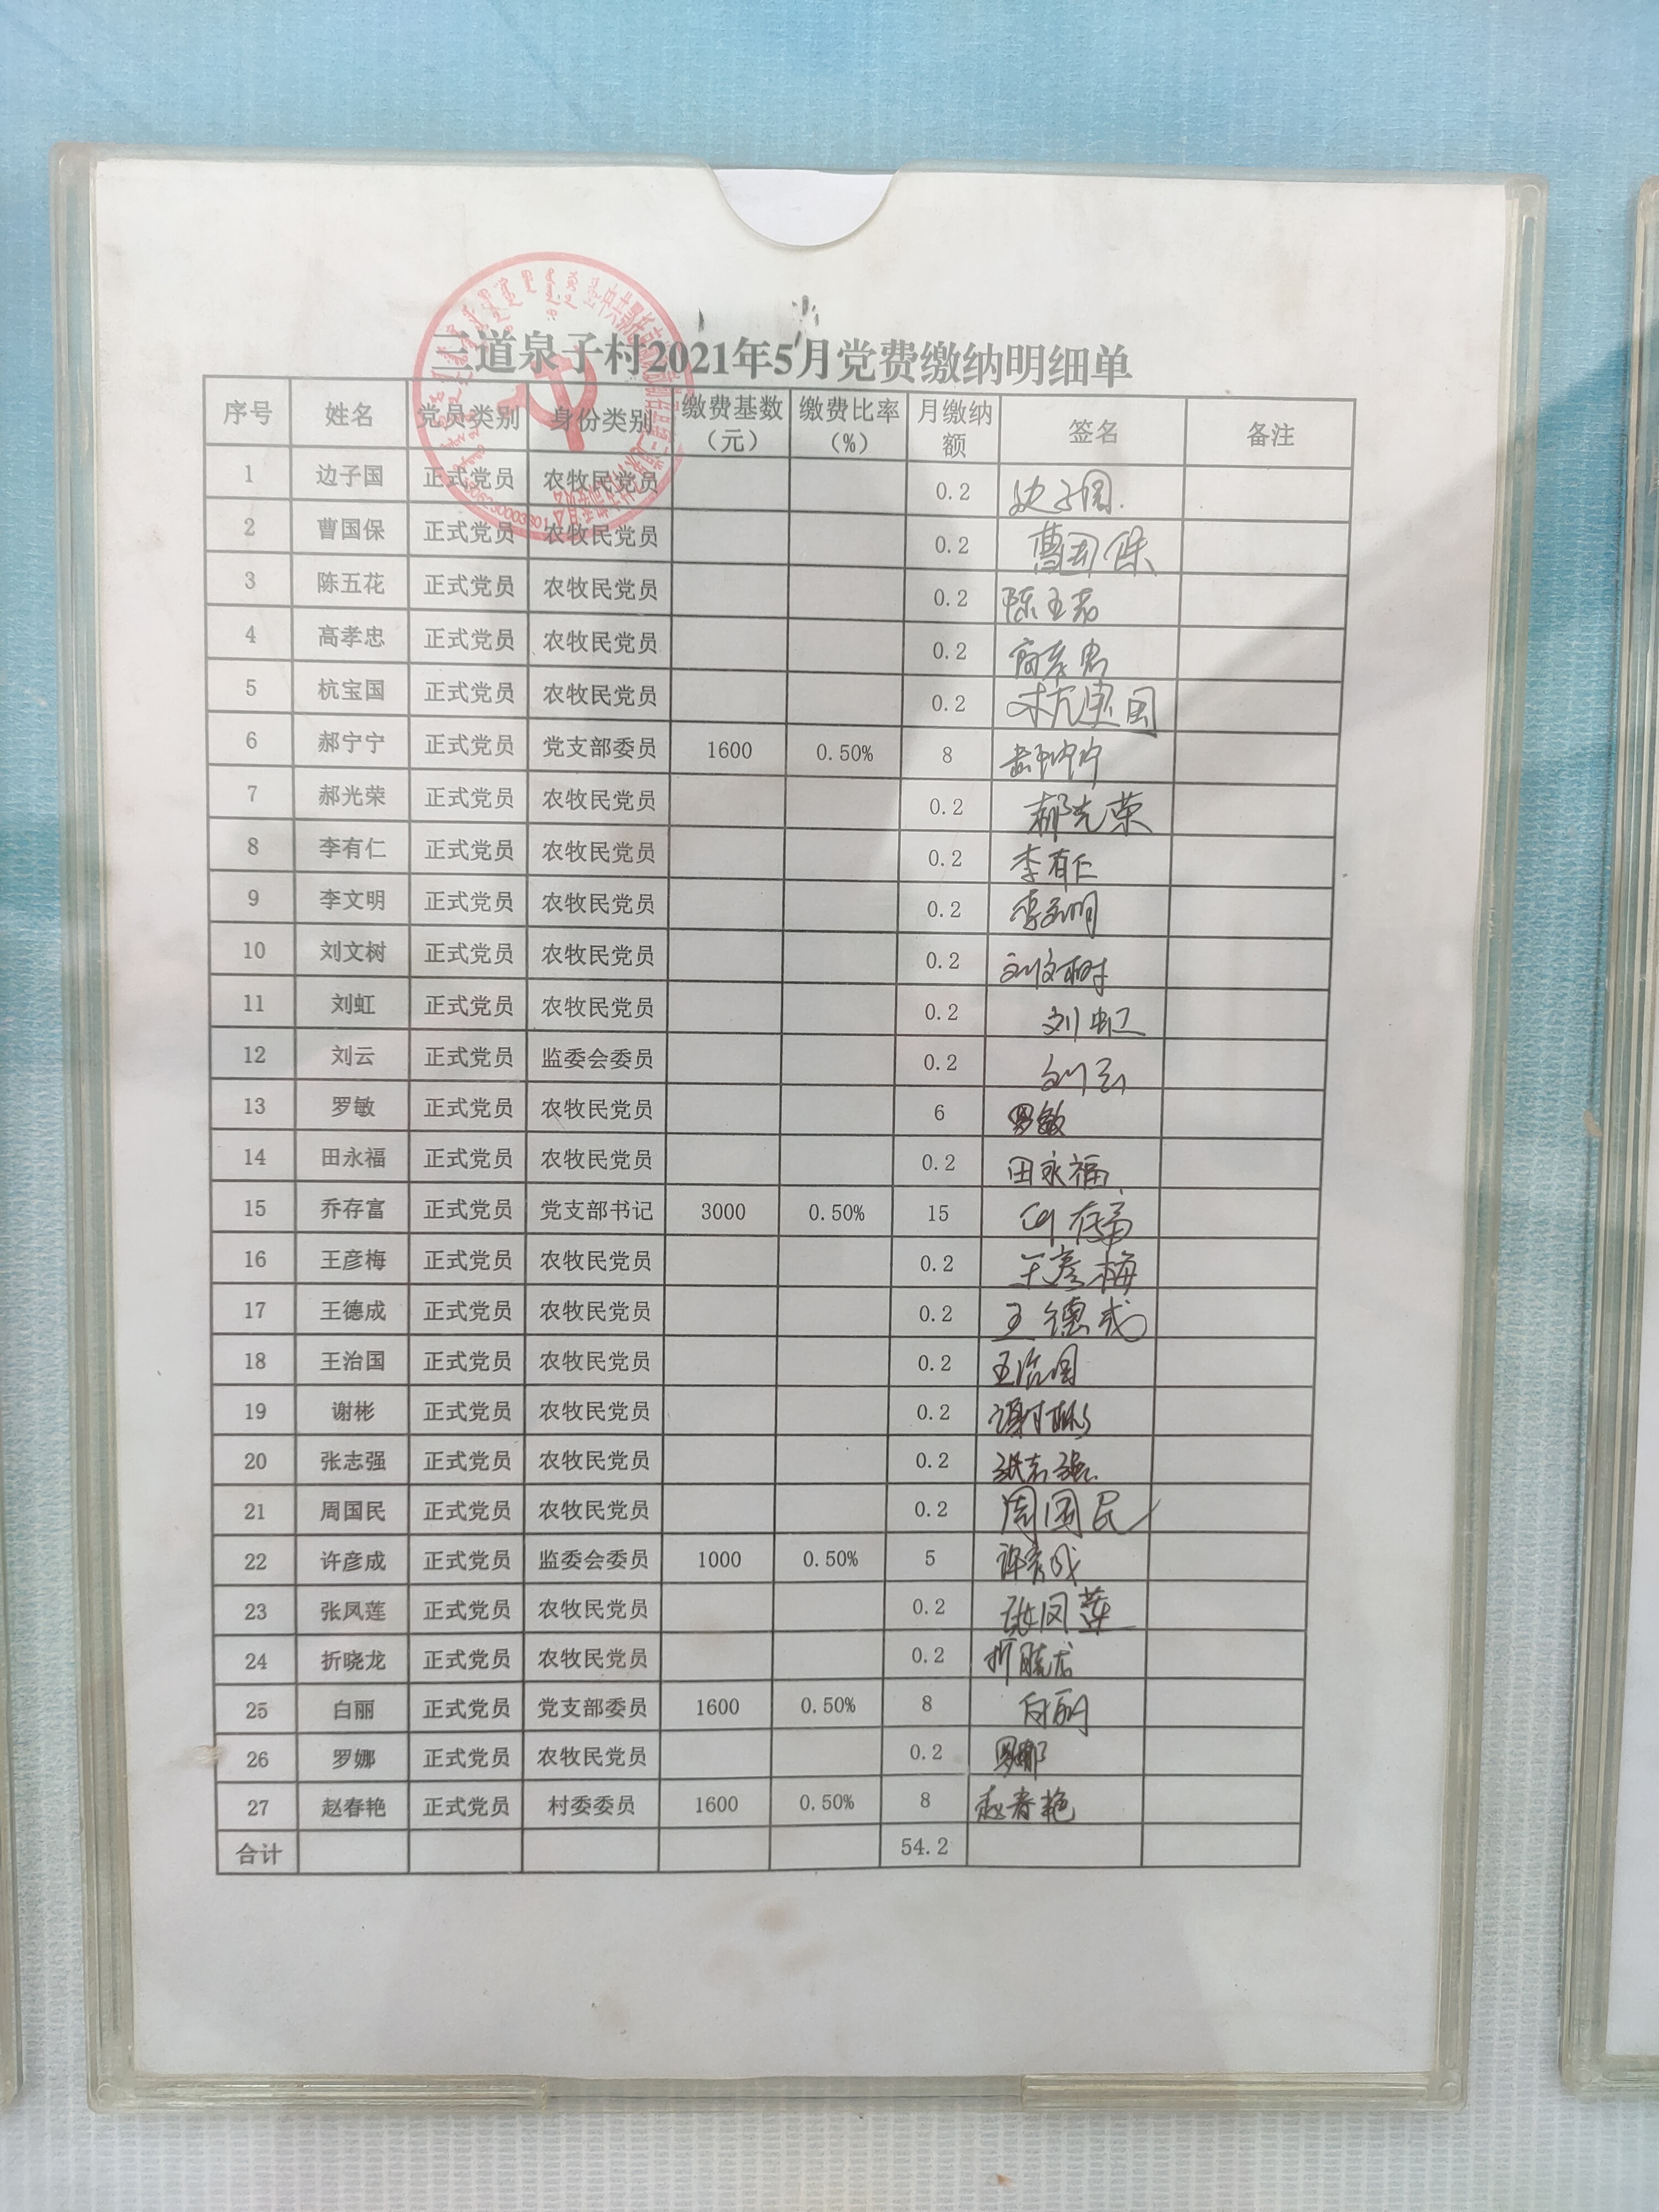 三道泉子村2021年5月党费缴纳明细单
序号 姓名 党员类别 身份类别 缴费基数（元） 缴费比率（%） 月缴纳额 签名 备注
1 边子国 正式党员 农牧民党员 0.2 边子国
2 曹国保 正式党员 农牧民党员 0.2 曹国保
3 陈五花 正式党员 农牧民党员 0.2 陈五花
4 高孝忠 正式党员 农牧民党员 0.2 高孝忠
5 杭宝国 正式党员 农牧民党员 0.2 杭宝国
6 郝宁宁 正式党员 党支部委员 1600 0.50% 8 郝宁宁
7 郝光荣 正式党员 农牧民党员 0.2 郝光荣
8 李有仁 正式党员 农牧民党员 0.2 李有仁
9 李文明 正式党员 农牧民党员 0.2 李文明
10 刘文树 正式党员 农牧民党员 0.2 刘文树
11 刘虹 正式党员 农牧民党员 0.2 刘虹
12 刘云 正式党员 监委会委员 0.2 刘云
13 罗敏 正式党员 农牧民党员 6 罗敏
14 田永福 正式党员 农牧民党员 0.2 田永福
15 乔存富 正式党员 党支部书记 3000 0.50% 15 乔存富
16 王彦梅 正式党员 农牧民党员 0.2 王彦梅
17 王德成 正式党员 农牧民党员 0.2 王德成
18 王治国 正式党员 农牧民党员 0.2 王治国
19 谢彬 正式党员 农牧民党员 0.2 谢彬
20 张志强 正式党员 农牧民党员 0.2 张志强
21 周国民 正式党员 农牧民党员 0.2 周国民
22 许彦成 正式党员 监委会委员 1000 0.50% 5 许彦成
23 张凤莲 正式党员 农牧民党员 0.2 张凤莲
24 折晓龙 正式党员 农牧民党员 0.2 折晓龙
25 白丽 正式党员 党支部委员 1600 0.50% 8 白丽
26 罗娜 正式党员 农牧民党员 0.2 罗娜
27 赵春艳 正式党员 村委委员 1600 0.50% 8 赵春艳
合计 54.2